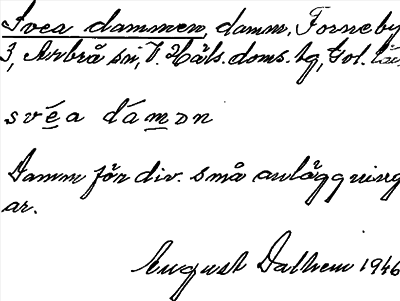 Svea dammen, damm, Forneby
3, Arbrå sn, V. Häls. doms. bg, Gol. län
svéa dámɒn
Damm för div. små anläggning
ar.
August Dalhem 1946